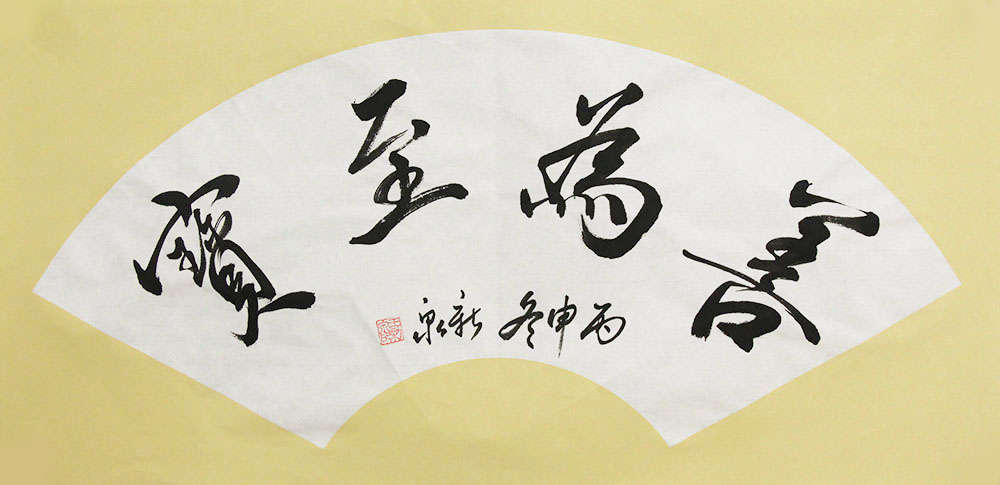 善為至寶
丙申冬新泉